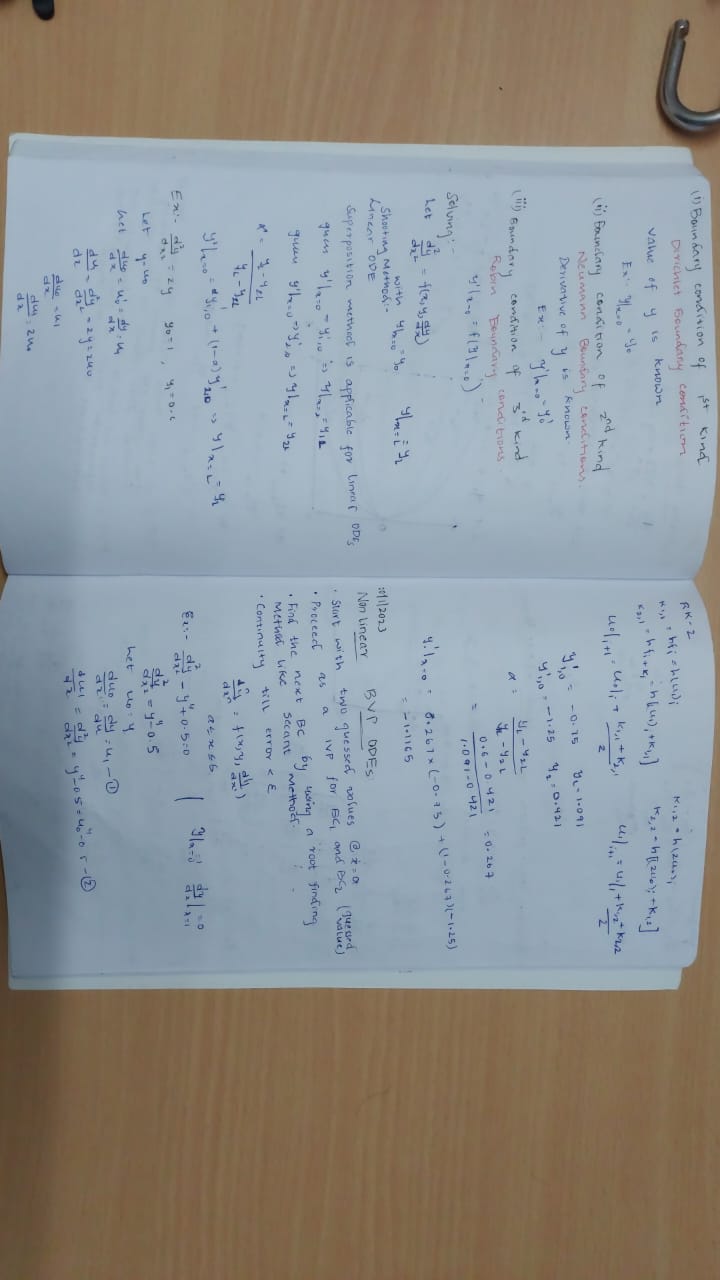 (i) Boundary condition of 1st kind
Dirichlet Boundary condition
value of y is known
Ex:- y|x=0 = y0
(ii) Boundary condition of 2nd kind
Neumann Boundary conditions.
Derivative of y is known
Ex:- y'|x=0 = y0'
(iii) Boundary condition of 3rd kind
Robin Boundary conditions
y'|x=0 = f(y|x=0)
Solving:-
Let d²y/dx² = f(x, y, dy/dx)
with y|x=0 = y0 y|x=L = yL
Shooting Method:-
Linear ODE
Superposition method is applicable for linear ODEs
guess y'|x=0 = y'1,0 => y|x=L = y1L
guess y'|x=0 => y'2,0 => y|x=L = y2L
y'|x=0 = αy'1,0 + (1-α)y'2,0 => y|x=L = yL
Ex:- d²y/dx² = 2y y0=1,
Let y=u0
Let du0/dx = u0 = dy/dx = u1
du1/dx = d²y/dx² = 2y = 2u0
du0/dx = u1
du1/dx = 2u0
RK-2
K1,2 = h(2u0)i
y'1,0 = -0.75
y'1,0 = -1.25 y2 = 0.421
= 0.6 - 0.421 / 1.091 - 0.421 = 0.267
y'|x=0 = 0.267×(-0.75) + (1-0.267)(-1.25)
= -1.1165
Non linear BVP ODEs
• Start with two guessed values @ x=a
• Proceed as a IVP for BC1 and BC2 (guessed value)
• Find the next BC by using a root finding
Method like Secant method.
• Continuity till error < ε
d²y/dx² = f(x, y, dy/dx)
Ex:- d²y/dx² - y⁴ + 0.5 = 0
d²y/dx² = y⁴ - 0.5
a≤x≤b
dy/dx|x=1 = 0
Let u0 = y
du0/dx = dy/dx = u1 - ①
du1/dx = d²y/dx² = y⁴ - 0.5 = u0⁴ - 0.5 - ②